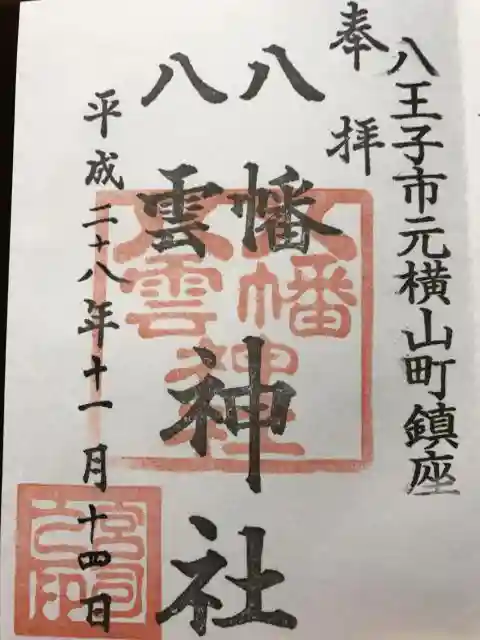 八王子市元横山町鎮座
奉拝
八幡
八雲
神社
平成二十八年十一月十四日
八幡
八雲
神社
宮司
之印